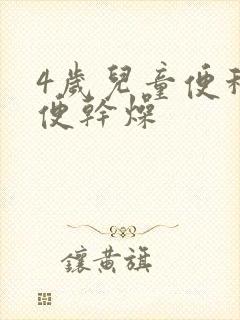 4歲兒童便秘
便幹燥
鑲黃旗